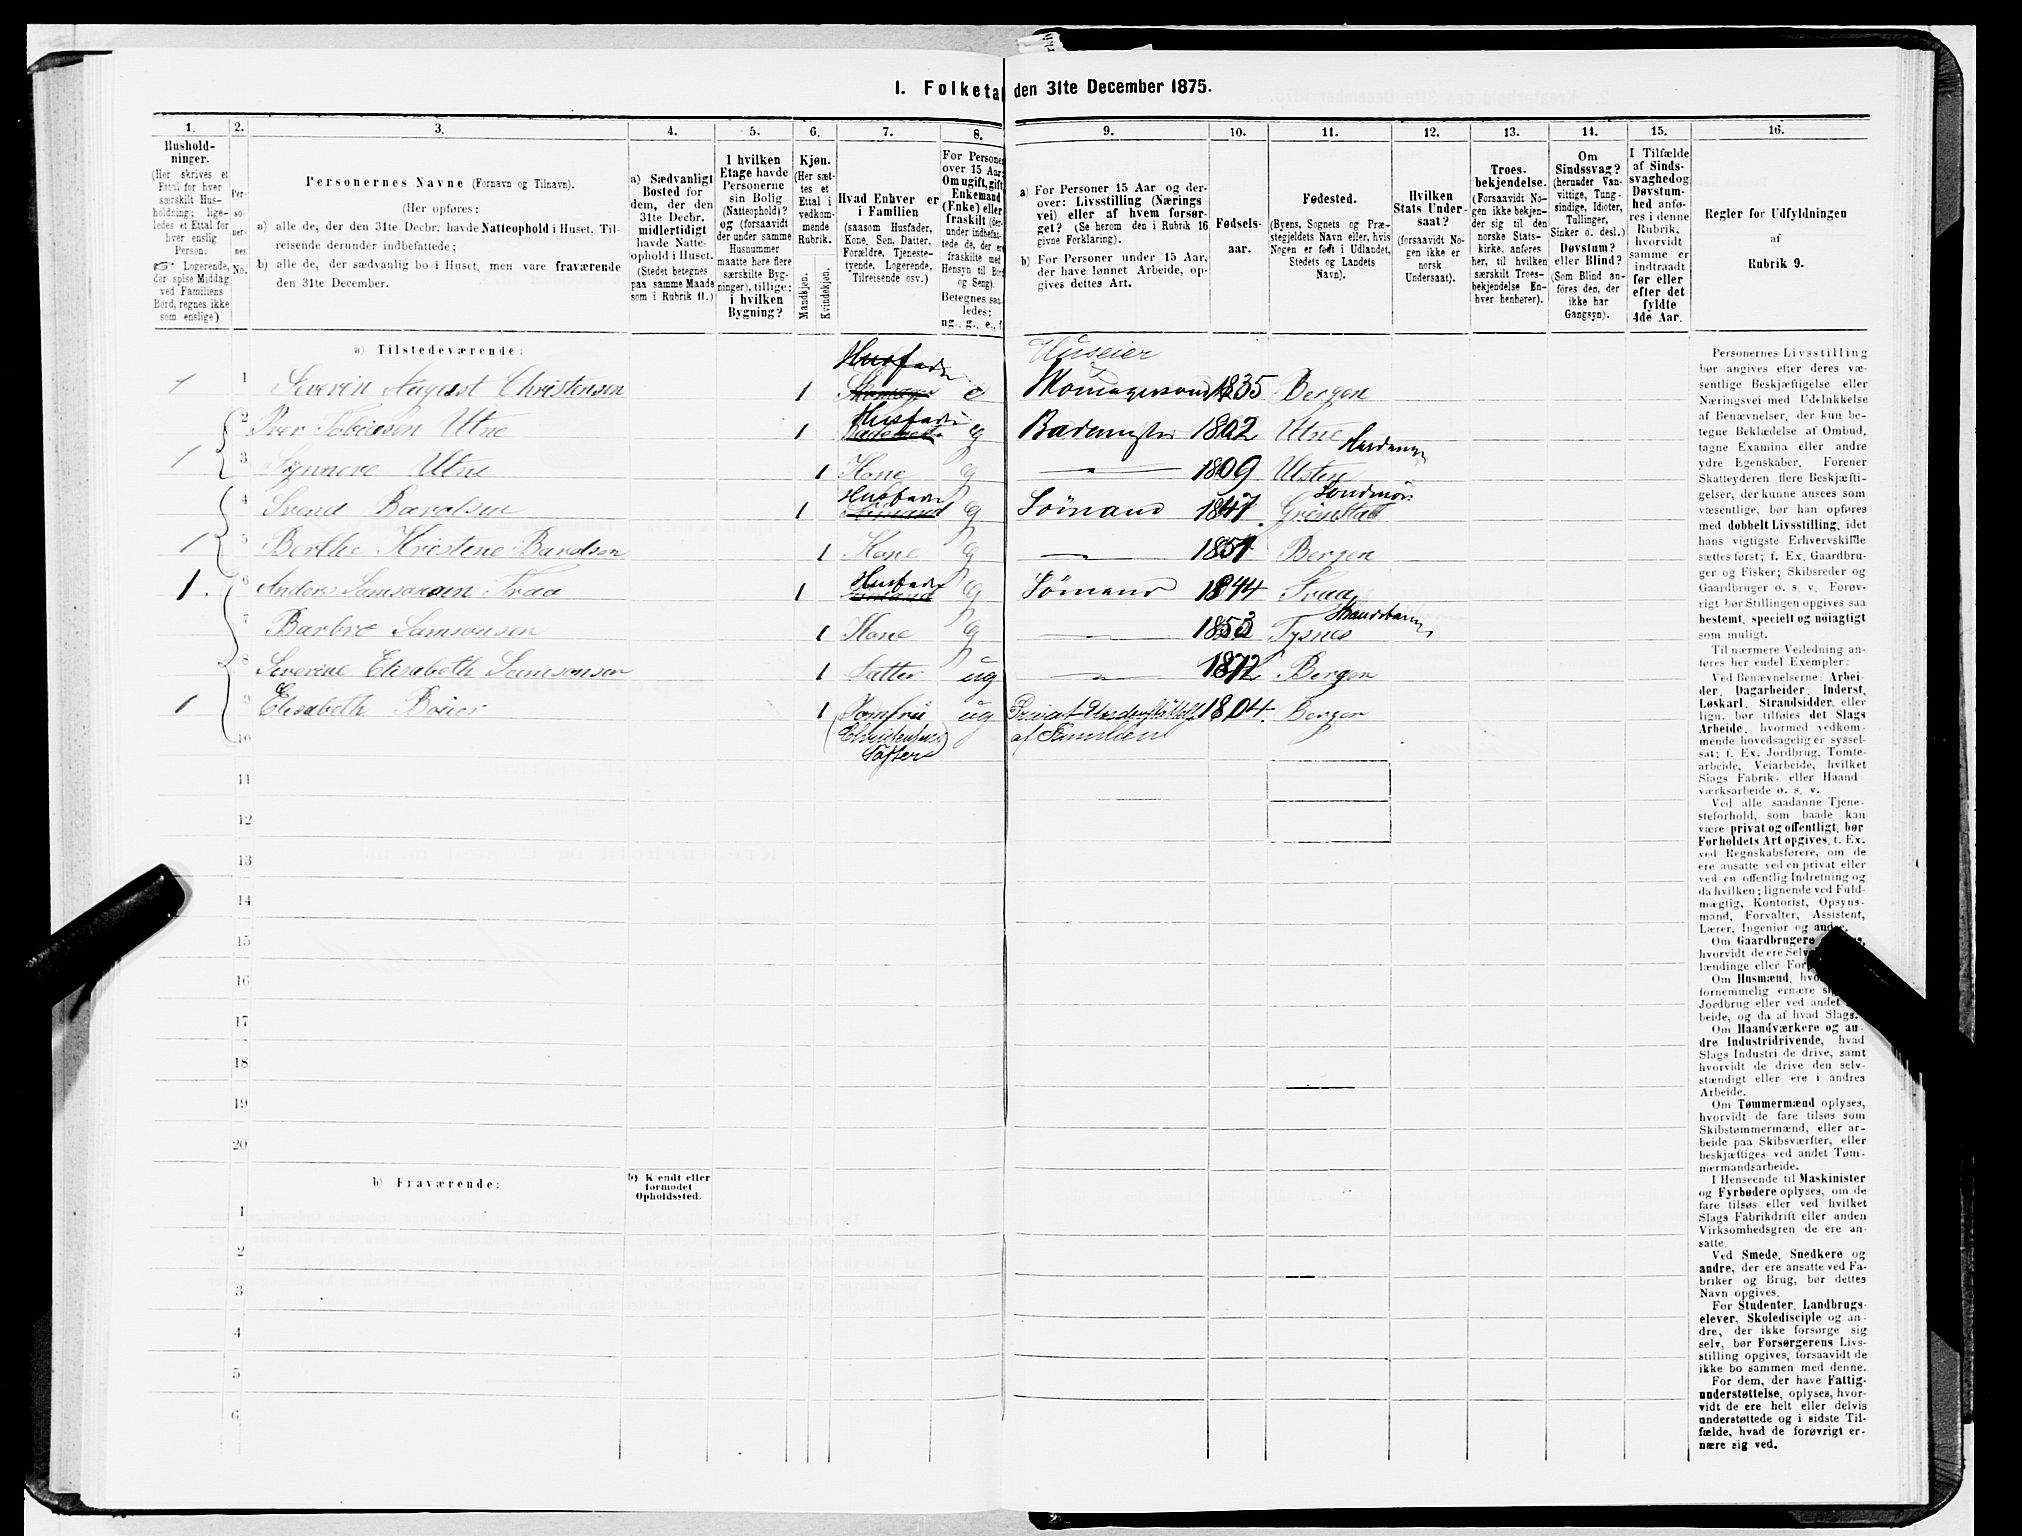 I. Folketal den 31te December 1875.
1. 2. 3. 4. 5. 6. 7. 8. 9. 10. 11. 12. 13. 14. 15. 16.
Hushold-
ninger.
(Her skrives et
Ettal for hver
særskilt Hus-
holdning; lige-
ledes et Ettal for
hver enslig
Person.
☞ Logerende,
der spise Middag
ved Familiens
Bord, regnes ikke
som enslige).
Per-
so-
ner-
nes
No.
Personernes Navne (Fornavn og Tilnavn).
(Her opføres:
a) alle de, der den 31te Decbr. havde Natteophold i Huset, Til-
reisende derunder indbefattede;
b) alle de, der sædvanlig bo i Huset, men vare fraværende
den 31te December.
a) Sædvanligt
Bosted for
dem, der den
31te Decbr.
midlertidigt
havde Natte-
ophold i Huset.
(Stedet betegnes
paa samme Maade
som i Rubrik 11.)
I hvilken
Etage havde
Personerne
sin Bolig
(Natteophold)?
og (forsaavidt
der under samme
Husnummer
maatte høre flere
særskilte Byg-
ninger), tillige:
i hvilken
Bygning?
Kjøn.
(Her sæt-
tes et
Ettal i
vedkom-
mende
Rubrik.
Mandkjøn.
Kvindekjøn.
Hvad Enhver er
i Familien
(saasom Husfader,
Kone, Søn, Datter,
Forældre, Tjeneste-
tyende, Logerende,
Tilreisende osv.)
For Personer
over 15 Aar:
Om ugift, gift,
Enkemand
(Enke) eller
fraskilt (der-
under indbefat-
tede de, der ere
fraskilte med
Hensyn til Bord
og Seng).
Betegnes saa-
ledes:
ug., g., e., f.
a) For Personer 15 Aar og der-
over: Livsstilling (Nærings
vei) eller af hvem forsør-
get? (Se herom den i Rubrik 16
givne Forklaring).
b) For Personer under 15 Aar,
der have lønnet Arbeide, op-
gives dettes Art.
Fødsels-
aar.
Fødested.
(Byens, Sognets og Præ-
stegjeldets Navn eller, hvis
Nogen er født i Udlandet,
Stedets og Landets
Navn).
Hvilken
Stats Under-
saat?
(forsaavidt No-
gen ikke er
norsk
Undersaat).
Troes-
bekjendelse.
(Forsaavidt No-
gen ikke bekjen-
der sig til den
norske Stats-
kirke, anføres
her, til hvilken
særskilt Troes-
bekjendelse En-
hver henhører).
Om
Sindssvag?
(herunder Van-
vittige, Tung-
sindige, Idioter,
Tullinger,
Sinker o. desl.)
Døvstum?
eller Blind?
(Som Blind an-
føres den, der
ikke har
Gangsyn).
I Tilfælde
af Sinds-
svaghed og
Døvstum-
hed anfø-
res i denne
Rubrik,
hvorvidt
samme er
indtraadt
før eller
efter det
fyldte
4de Aar.
Regler for Udfyldningen
af
Rubrik 9.
a) Tilstedeværende:
Husfader Huseier
1 1 Severin August Christensen 1 e Skomagersvend 1835 Bergen
2 Iver Tobiesen Utne 1 Husfader g Bademester 1802 Utne Hardanger
1 3 Synneve Utne 1 Kone g — 1809 Ulsten
4 Svend Bardsen 1 Husfader Sømand g Sømand 1847 Grimstad Søndmør
1 5 Berthe Kristene Bardsen 1 Kone g — 1851 Bergen
1. 6 Anders Samsonsen Svaa 1 Husfader Sømand g Sømand 1844 Svaa
7 Barbro Samsonsen 1 Kone g — 1853 Tysnes Strandebarm
8 Severine Elisabeth Samsonsen 1 Datter ug — 1872 Bergen
1 9 Elisabeth Boüer 1 Jomfru ug Privat Understøttelse 1804. Bergen
10 (Christensens) af Familien
Søster
11
12
13
14
15
16
17
18
19
20
b) Fraværende:
b) Kjendt eller
formodet
Opholdssted.
1
2
3
4
5
6
Personernes Livsstilling
bør angives efter deres væ-
sentlige Beskjæftigelse eller
Næringsvei med Udelukkelse
af Benævnelser, der kun be-
tegne Beklædelse af Ombud,
tagne Examina eller andre
ydre Egenskaber. Forener
Skatteyderen flere Beskjæfti-
gelser, der kunne ansees som
væsentlige, bør han opføres
med dobbelt Livsstilling, idet
hans vigtigste Erhvervskilde
sættes først; f. Ex. Gaardbru-
ger og Fisker; Skibsreder og
Gaardbruger o. s. v. Forøv-
rigt bør Stillingen opgives saa
bestemt, specielt og nøiagtigt
som muligt.
Til nærmere Veiledning an-
føres her endel Exempler:
Ved Benævnelserne: Arbei-
der, Dagarbeider, Inderst,
Løskarl, Strandsidder, eller
lign. bør tilføies det Slags
Arbeide, hvormed vedkom-
mende hovedsagelig er syssel-
sat; f. Ex. Jordbrug, Tomte-
arbeide, Veiarbeide, hvilket
Slags Fabrik- eller Haand-
værksarbeide o. s. v.
Ved alle saadanne Tjene-
steforhold, som baade kan
være privat og offentligt, bør
Forholdets Art opgives, t. Ex.
ved Regnskabsførere, om de
ere ansatte ved en privat eller
ved en offentlig Indretning og
da hvilken; lignende ved Fuld-
mægtig, Kontorist, Opsyns-
mand, Forvalter, Assistent,
Lærer, Ingeniør og andre.
Om Gaardbrugere
hvorvidt de ere
lændinge eller
Om Husmænd,
fornemmelig ernære
Jordbrug eller ved andet
beide, og da af hvad Slags.
Om Haandværkere og an-
dre Industridrivende, hvad
Slags Industri de drive, samt
hvorvidt de drive den selv-
stændigt eller ere i andres
Arbeide.
Om Tømmermænd oplyses,
hvorvidt de fare tilsøs som
Skibstømmermænd, eller ar-
beide paa Skibsværfter, eller
beskjæftiges ved andet Tøm-
mermandsarbeide.
I Henseende til Maskinister
og Fyrbødere oplyses, om de
fare tilsøs eller ved hvilket
Slags Fabrikdrift eller anden
Virksomhedsgren de ere an-
satte.
Ved Smede, Snedkere og
andre, der ere ansatte ved Fa-
briker og Brug, bør dettes
Navn opgives.
For Studenter, Landbrugs-
elever, Skoledisciple og an-
dre, der ikke forsørge sig
selv, bør Forsørgerens Livs-
stilling opgives, forsaavidt de
ikke bo sammen med denne.
For dem, der have Fattig-
understøttelse, oplyses, hvor-
vidt de ere helt eller delvis
understøttede og i sidste Til-
fælde, hvad de forøvrigt er-
nære sig ved.